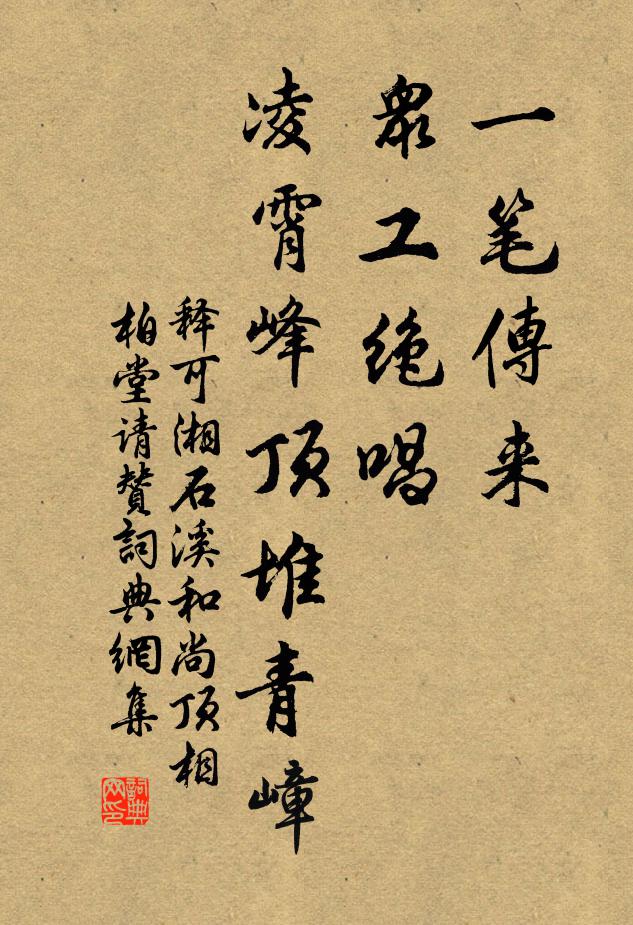 一笔傳来
衆工绝唱
凌霄峰顶堆青嶂
释可湘石溪和尚顶相
柏堂请赞詞典網集
詞典网印